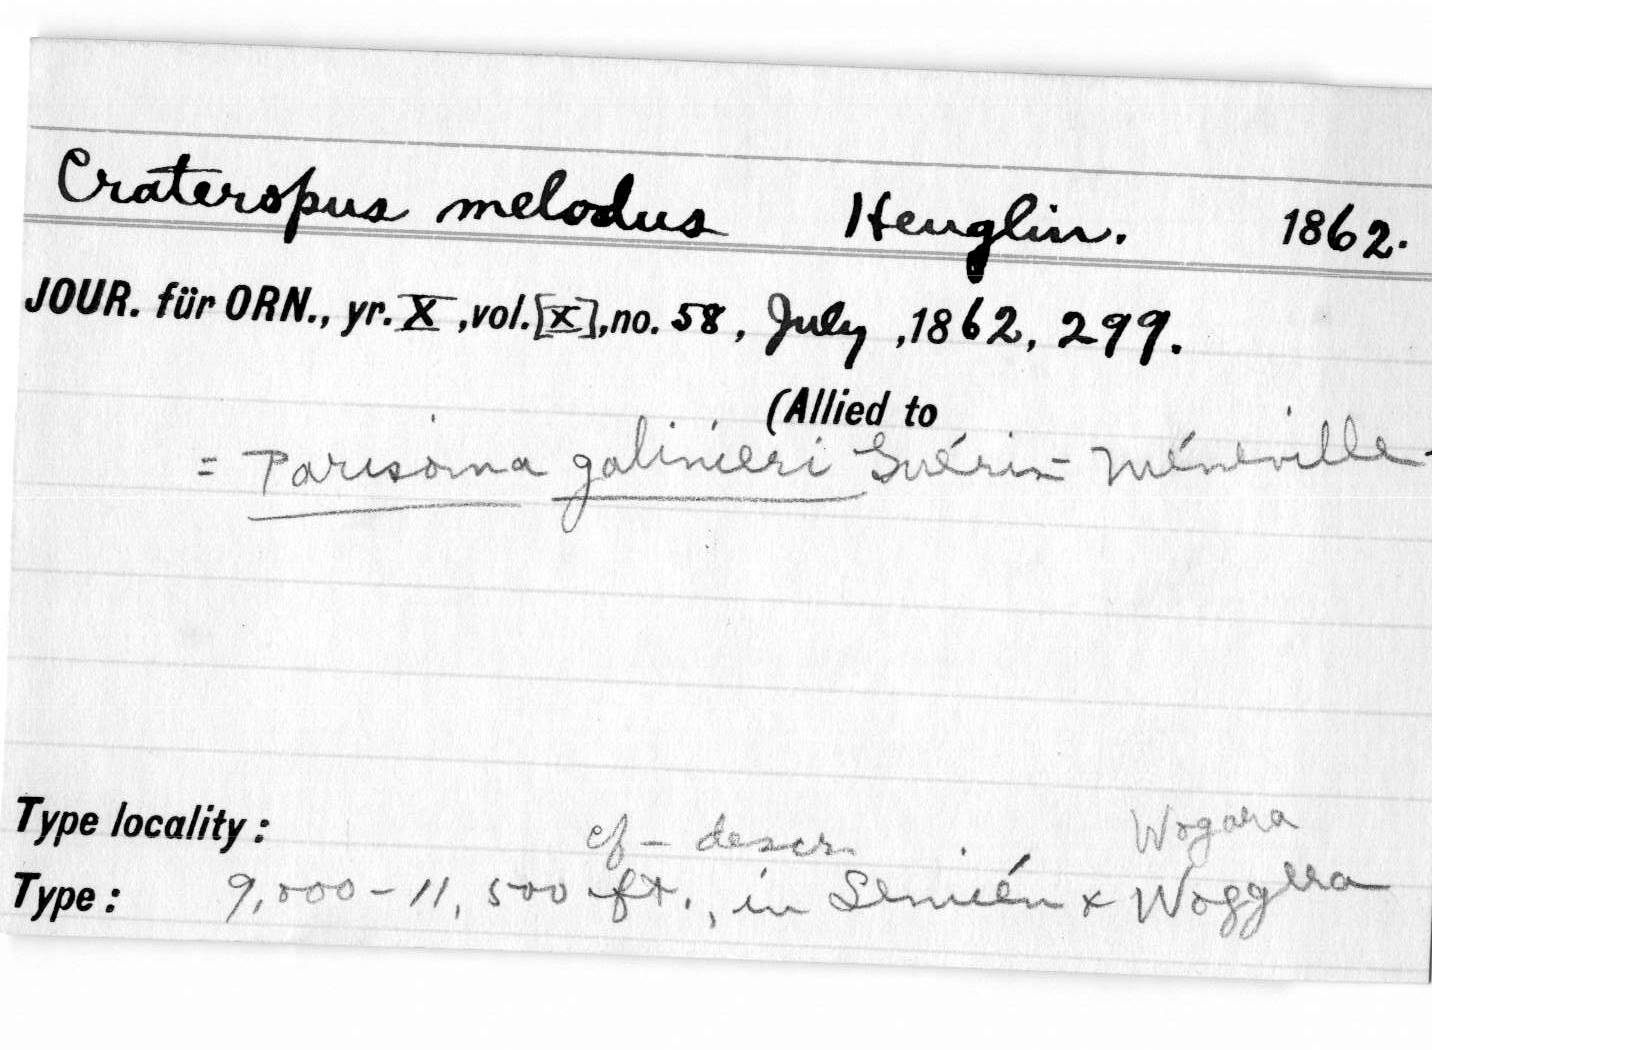 Crateropus melodus Heuglin. 1862.
JOUR. für ORN., yr. X, vol. [X], no. 58, July, 1862, 299.
(Allied to
= Parisoma galinieri Guérin-Méneville
Type locality: cf - descr. Wogara
Type: 9,000-11,500 ft., in Semién & Woggera